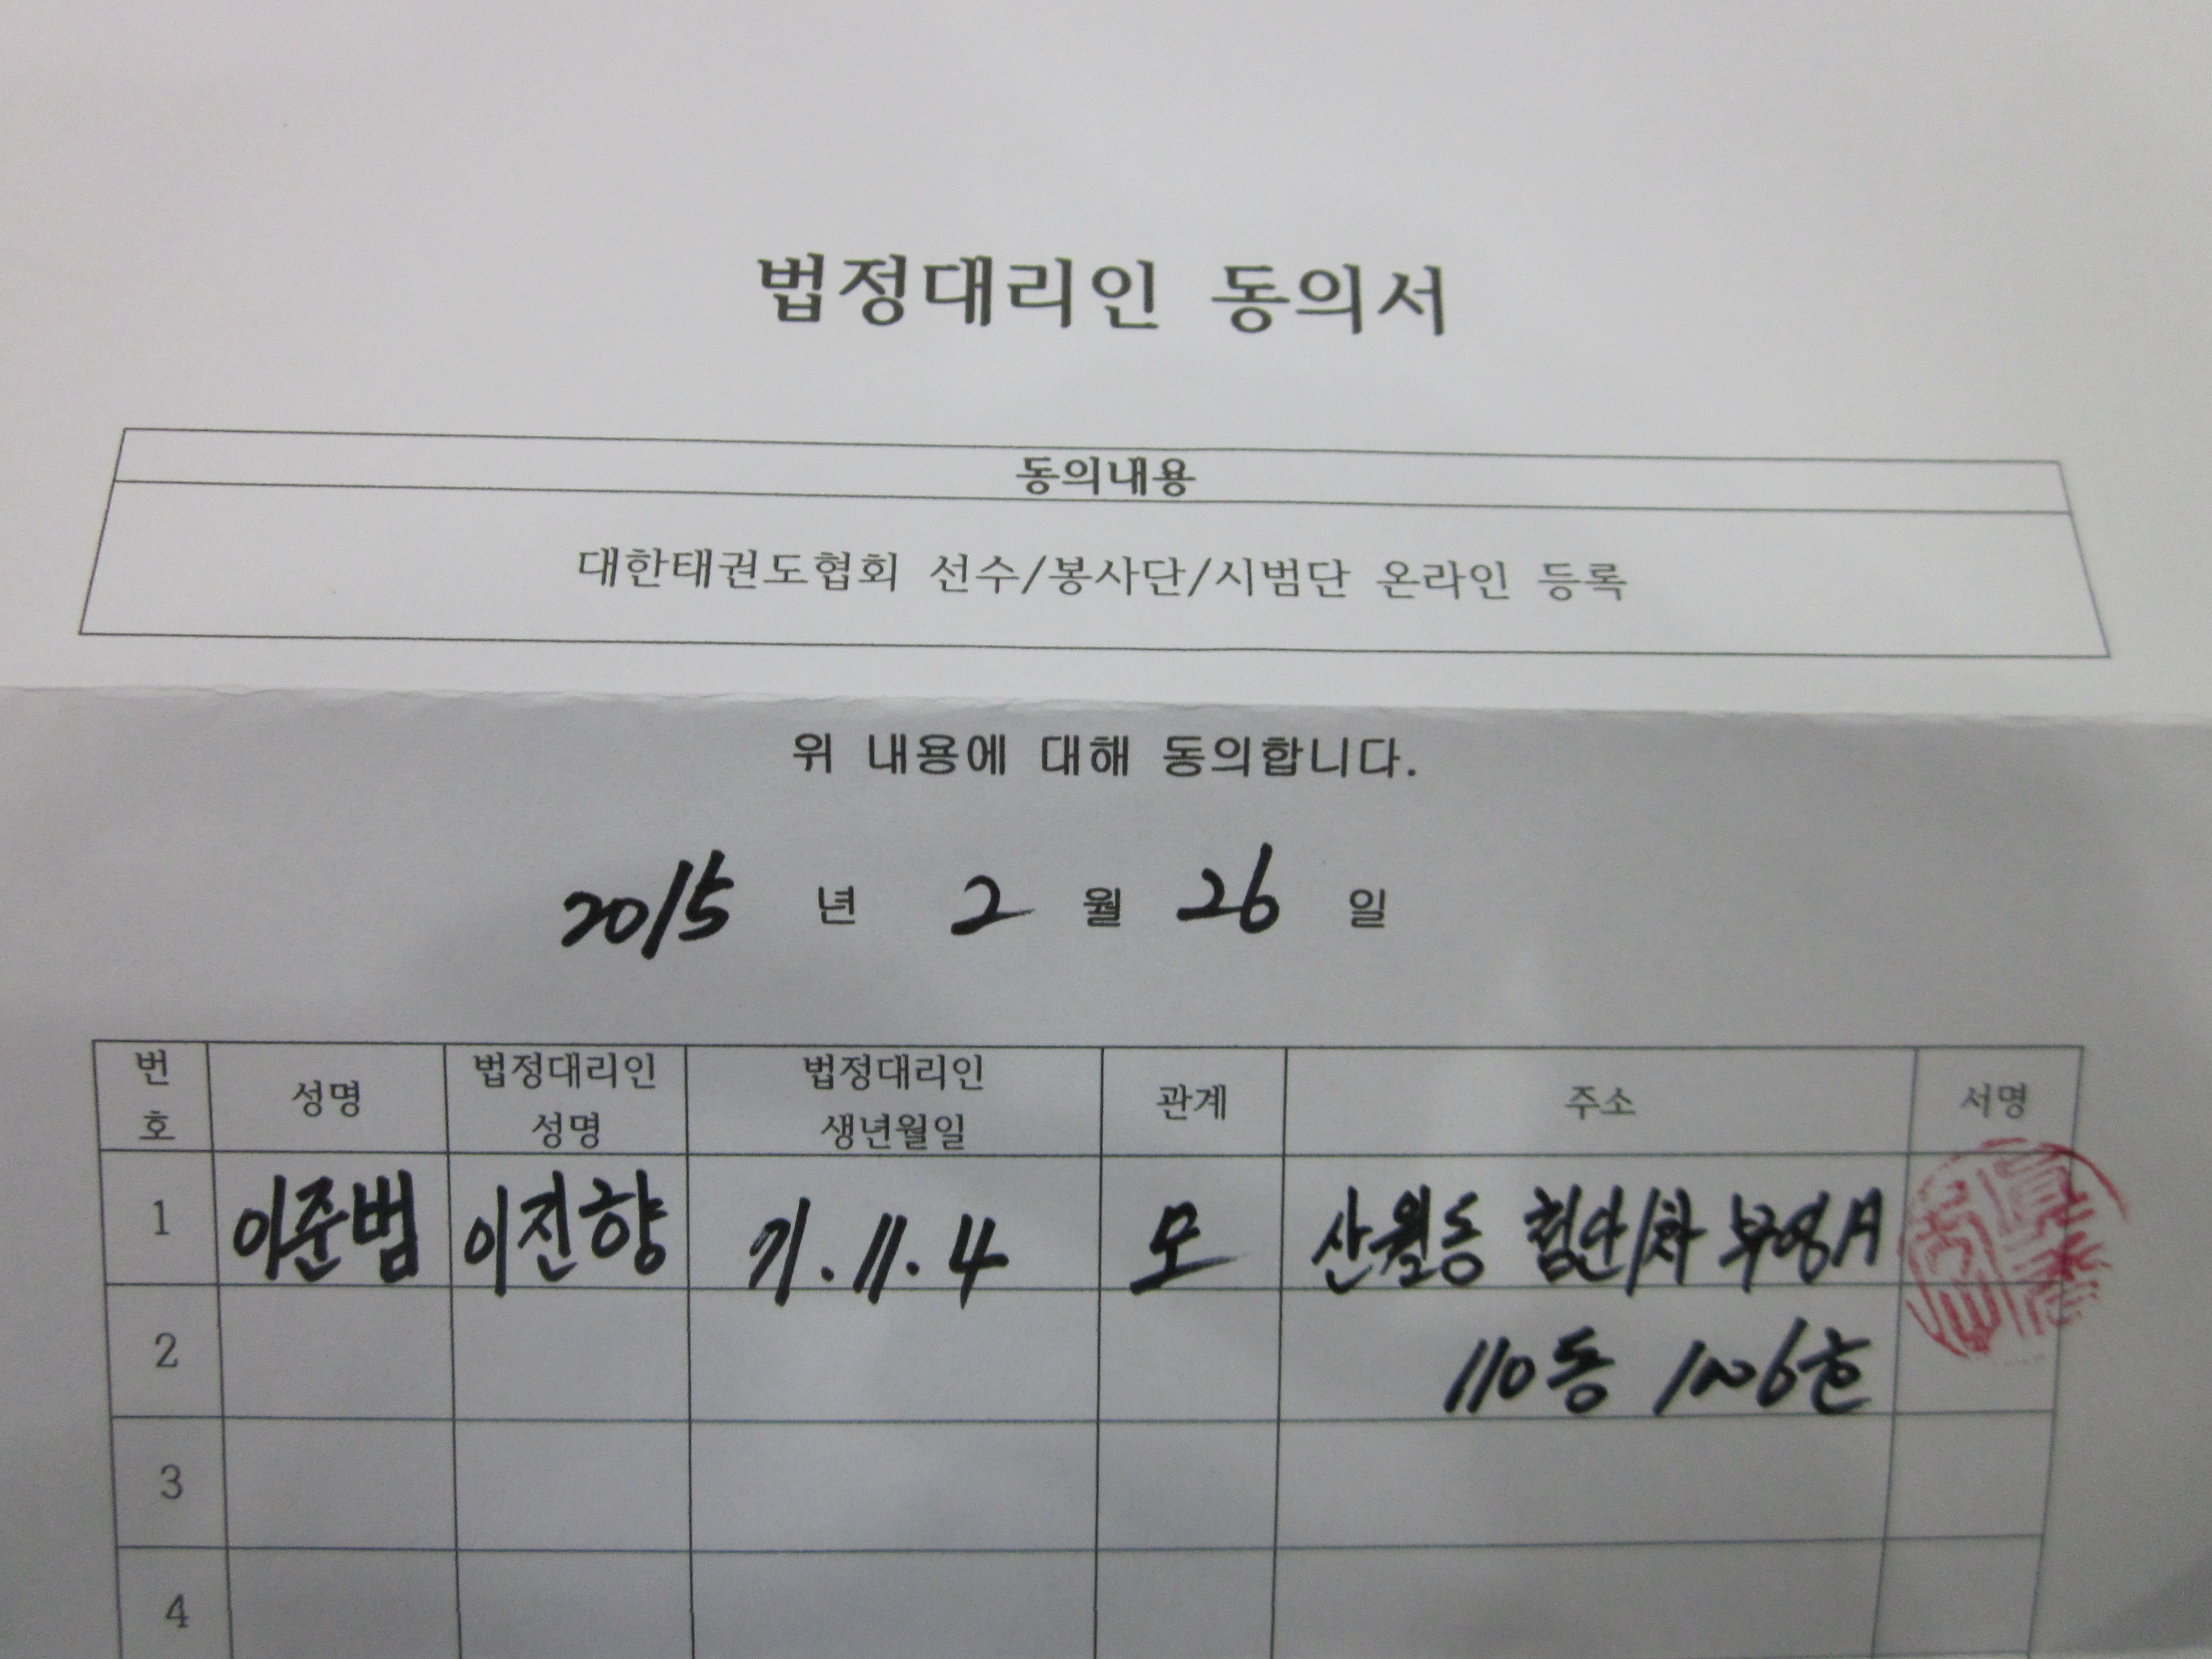 법정대리인 동의서
동의내용
대한태권도협회 선수/봉사단/시범단 온라인 등록
위 내용에 대해 동의합니다.
2015 년 2 월 26 일
번호 성명 법정대리인 성명 법정대리인 생년월일 관계 주소 서명
1 이준범 이진향 71.11.4 모 산월동 첨단1차 부영A
2 110동 1006호
3
4